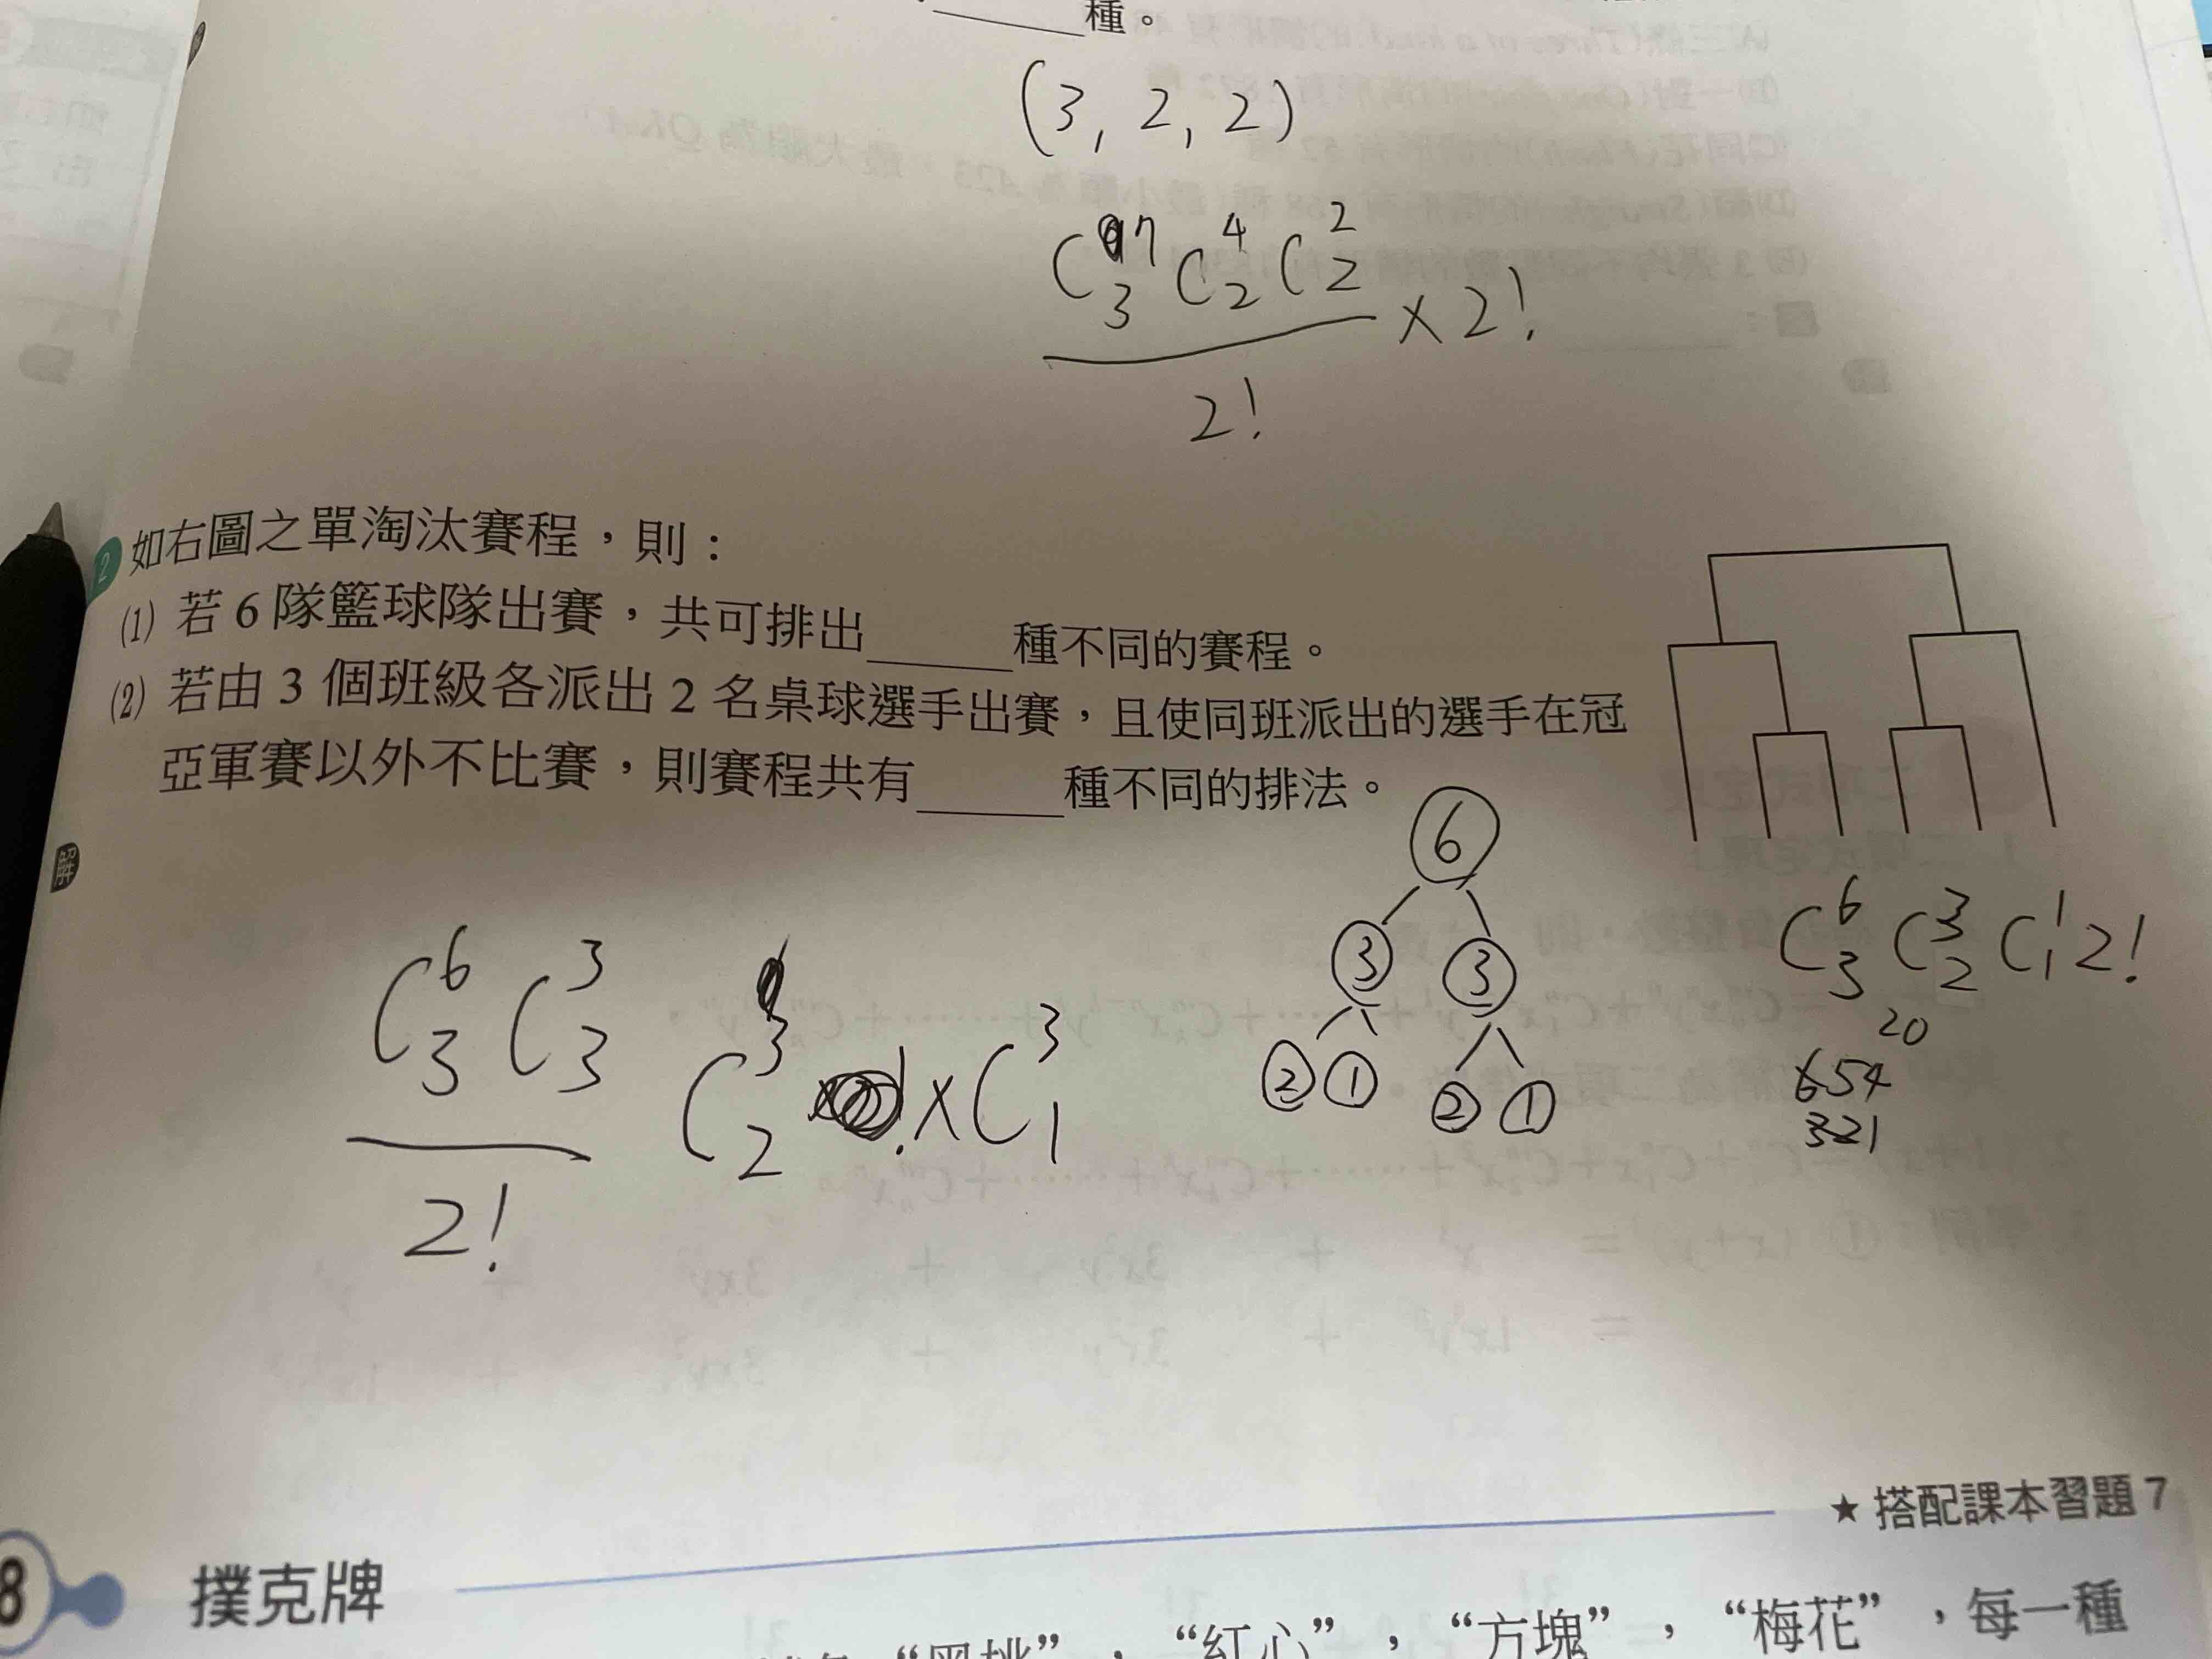 種。
(3, 2, 2)
C⁷₃ C⁴₂ C²₂ / 2! × 2!
2 如右圖之單淘汰賽程，則：
(1) 若 6 隊籃球隊出賽，共可排出______種不同的賽程。
(2) 若由 3 個班級各派出 2 名桌球選手出賽，且使同班派出的選手在冠
亞軍賽以外不比賽，則賽程共有______種不同的排法。
解
6
3 3
2 1 2 1
C⁶₃ C³₃ / 2! C³₂ × C³₁
C⁶₃ C³₂ C¹₁ 2!
20
654
321
★ 搭配課本習題 7
8 撲克牌
“黑桃”，“紅心”，“方塊”，“梅花”，每一種